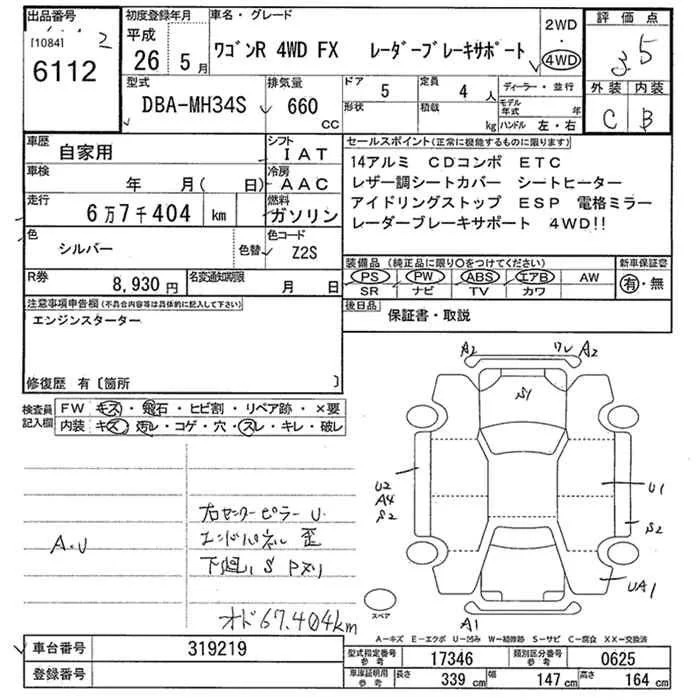 出品番号
[1084] 2
6112
初度登録年月
平成
26 5月
車名・グレード
ワゴンR 4WD FX レーダーブレーキサポート
2WD
・
4WD
評価点
3.5
外装 内装
C B
型式
DBA-MH34S
排気量
660
cc
ドア
5
定員
4 人
形状
積載
kg
ディーラー・並行
モデル年式 年
ハンドル 左・右
車歴
自家用
シフト
IAT
車検
年 月( 日)
冷房
AAC
走行
6万7千404 km
燃料
ガソリン
色
シルバー
色替
色コード
Z2S
R券
8,930円
名変通知期限
月 日
セールスポイント(正常に機能するものに限ります)
14アルミ CDコンポ ETC
レザー調シートカバー シートヒーター
アイドリングストップ ESP 電格ミラー
レーダーブレーキサポート 4WD!!
装備品(純正品に限り○をつけてください)
PS PW ABS エアB AW
SR ナビ TV カワ
新車保証書
有・無
後日品
保証書・取説
注意事項申告欄(不具合内容等は具体的に記入して下さい)
エンジンスターター
修復歴 有〔箇所 〕
検査員
記入欄
FW キズ・飛石・ヒビ割・リペア跡・×要
内装 キズ・汚レ・コゲ・穴・スレ・キレ・破レ
A.U
右センターピラー U
エンドパネル 歪
下廻り S Pヌリ
オド 67.404km
A2
ワレ A2
S1
U2
A4
S2
U1
S2
UA1
A1
スペア
A－キズ E－エクボ U－凹み W－補修跡 S－サビ C－腐食 XX－交換済
車台番号
319219
登録番号
型式指定番号
参考
17346
類別区分番号
参考
0625
車庫証明用
参考
長さ
339 cm
幅
147 cm
高さ
164 cm